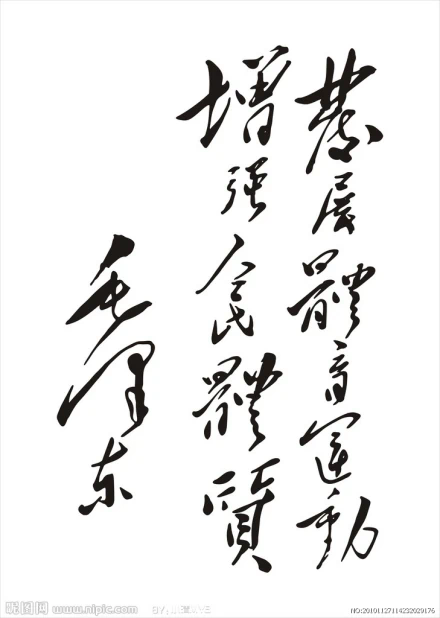 發展體育運動
增强人民體質
毛泽东
昵图网 www.nipic.com
NO:20101127114232029176